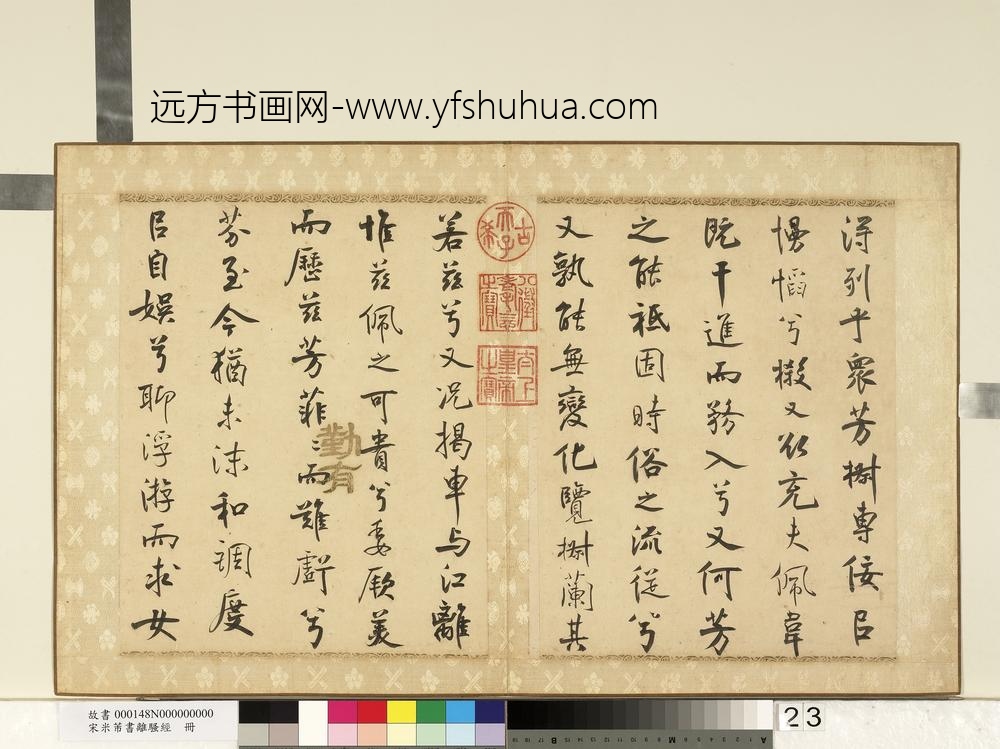 远方书画网-www.yfshuhua.com
得列乎眾芳樹專佞㠯
慢慆兮樧又欲充夫佩幃
既干進而務入兮又何芳
之能祗固時俗之流從兮
又孰能無變化覽樹蘭其
若茲兮又況揭車與江離
惟茲佩之可貴兮委厥美
而歷茲芳菲〻而難虧兮
芬至今猶未沬和調度
㠯自娛兮聊浮游而求女
古希天子
八徵耄念之寶
太上皇帝之寶
勤有
故書 000148N000000000
宋米芾書離騷經 冊
23